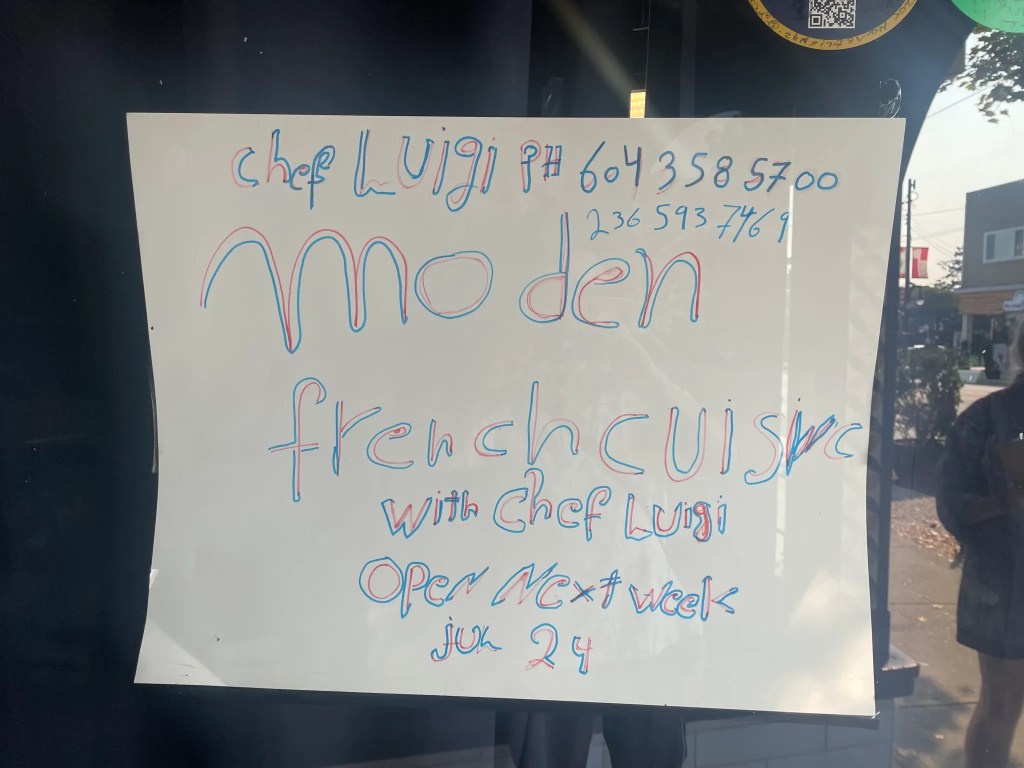 chef LUigi PH 604 358 5700
236 593 7469
moden
french cuisine
with chef LUigi
OPeN Next week
jun 24